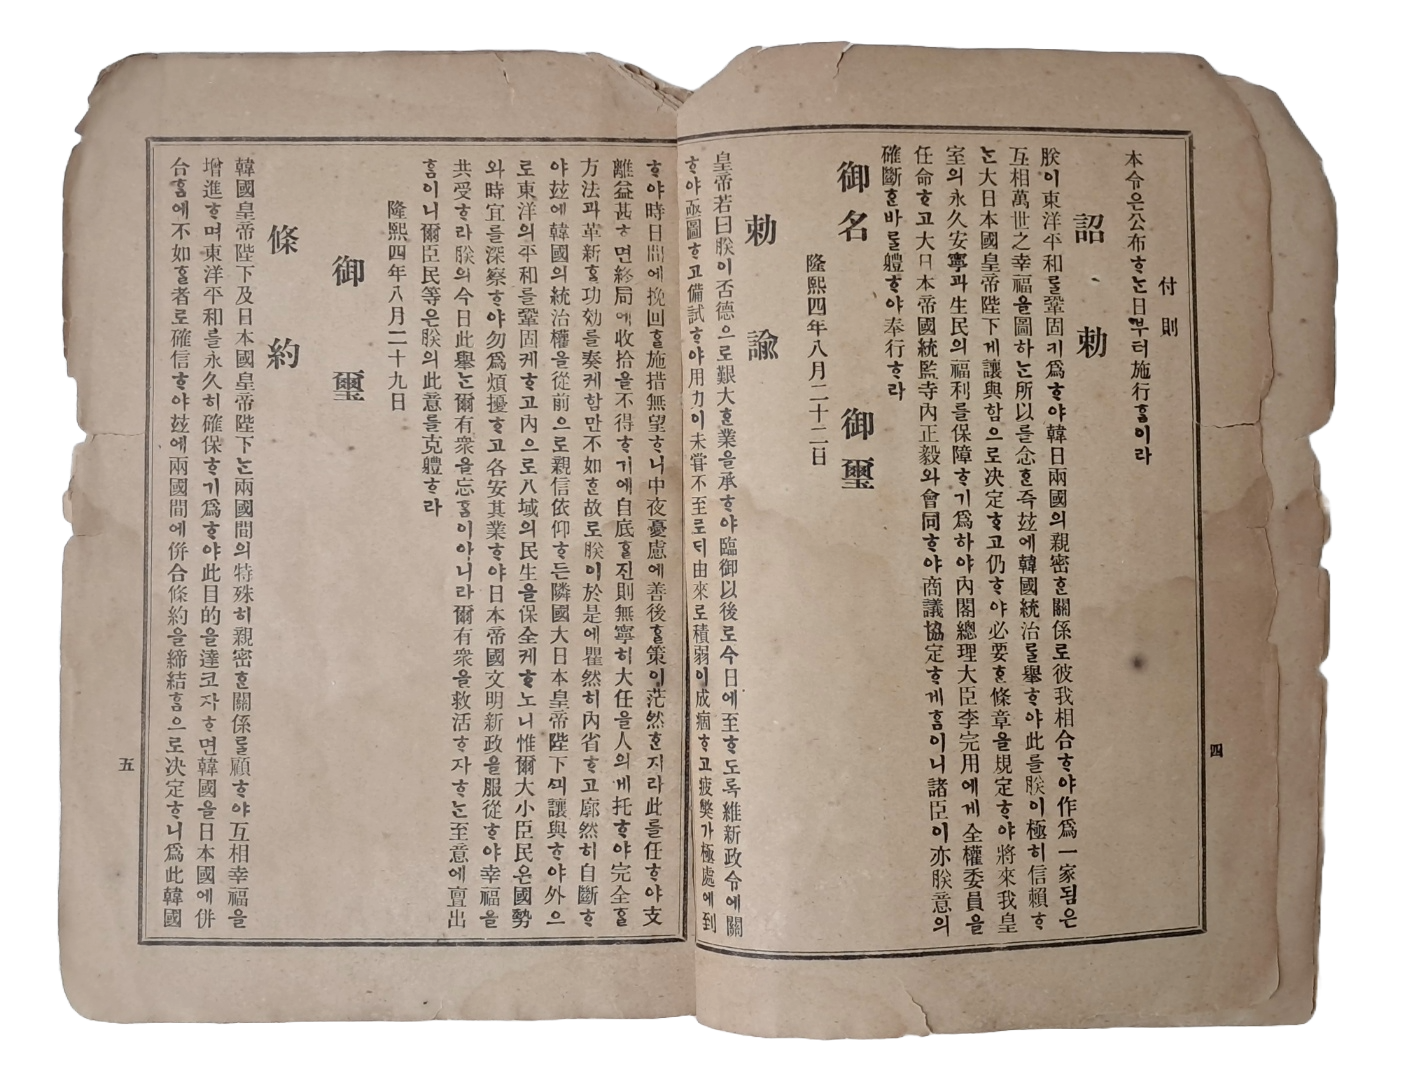 付則
本令은公布ᄒᆞᄂᆞᆫ日부터施行홈이라
詔勅
朕이東洋平和ᄅᆞᆯ鞏固기爲ᄒᆞ야韓日兩國의親密ᄒᆞᆫ關係로彼我相合ᄒᆞ야作爲一家됨은
互相萬世之幸福을圖하ᄂᆞᆫ所以를念ᄒᆞᆫ즉玆에韓國統治ᄅᆞᆯ擧ᄒᆞ야此를朕이極히信賴ᄒᆞ
ᄂᆞᆫ大日本國皇帝陛下게讓與함으로决定ᄒᆞ고仍ᄒᆞ야必要ᄒᆞᆫ條章을規定ᄒᆞ야將來我皇
室의永久安寧과生民의福利를保障ᄒᆞ기爲하야內閣總理大臣李完用에게全權委員을
任命ᄒᆞ고大日本帝國統監寺內正毅와會同ᄒᆞ야商議協定ᄒᆞ게홈이니諸臣이亦朕意의
確斷ᄒᆞᆫ바ᄅᆞᆯ軆ᄒᆞ야奉行ᄒᆞ라
御名 御璽
隆熙四年八月二十二日
勅諭
皇帝若曰朕이否德으로艱大ᄒᆞᆫ業을承ᄒᆞ야臨御以後로今日에至ᄒᆞ도록維新政令에關
ᄒᆞ야亟圖ᄒᆞ고備試ᄒᆞ야用力이未嘗不至로ᄃᆡ由來로積弱이成痼ᄒᆞ고疲弊가極處에到
ᄒᆞ야時日間에挽回ᄒᆞᆯ施措無望ᄒᆞ니中夜憂慮에善後ᄒᆞᆯ策이茫然ᄒᆞᆫ지라此를任ᄒᆞ야支
離益甚ᄒᆞ면終局에收拾을不得ᄒᆞ기에自底ᄒᆞᆯ진則無寧히大任을人의게托ᄒᆞ야完全ᄒᆞᆯ
方法과革新ᄒᆞᆯ功効를奏케함만不如ᄒᆞᆫ故로朕이於是에瞿然히內省ᄒᆞ고廓然히自斷ᄒᆞ
야玆에韓國의統治權을從前으로親信依仰ᄒᆞ든隣國大日本皇帝陛下ᄭᅴ讓與ᄒᆞ야外으
로東洋의平和를鞏固케ᄒᆞ고內으로八域의民生을保全케ᄒᆞ노니惟爾大小臣民은國勢
와時宜를深察ᄒᆞ야勿爲煩擾ᄒᆞ고各安其業ᄒᆞ야日本帝國文明新政을服從ᄒᆞ야幸福을
共受ᄒᆞ라朕의今日此擧ᄂᆞᆫ爾有衆을忘홈이아니라爾有衆을救活ᄒᆞ자ᄒᆞᄂᆞᆫ至意에亶出
홈이니爾臣民等은朕의此意를克軆ᄒᆞ라
隆熙四年八月二十九日
御璽
條約
韓國皇帝陛下及日本國皇帝陛下ᄂᆞᆫ兩國間의特殊히親密ᄒᆞᆫ關係ᄅᆞᆯ顧ᄒᆞ야互相幸福을
增進ᄒᆞ며東洋平和를永久히確保ᄒᆞ기爲ᄒᆞ야此目的을達코자ᄒᆞ면韓國을日本國에併
合홈에不如ᄒᆞᆯ者로確信ᄒᆞ야玆에兩國間에併合條約을締結홈으로决定ᄒᆞ니爲此韓國
四
五